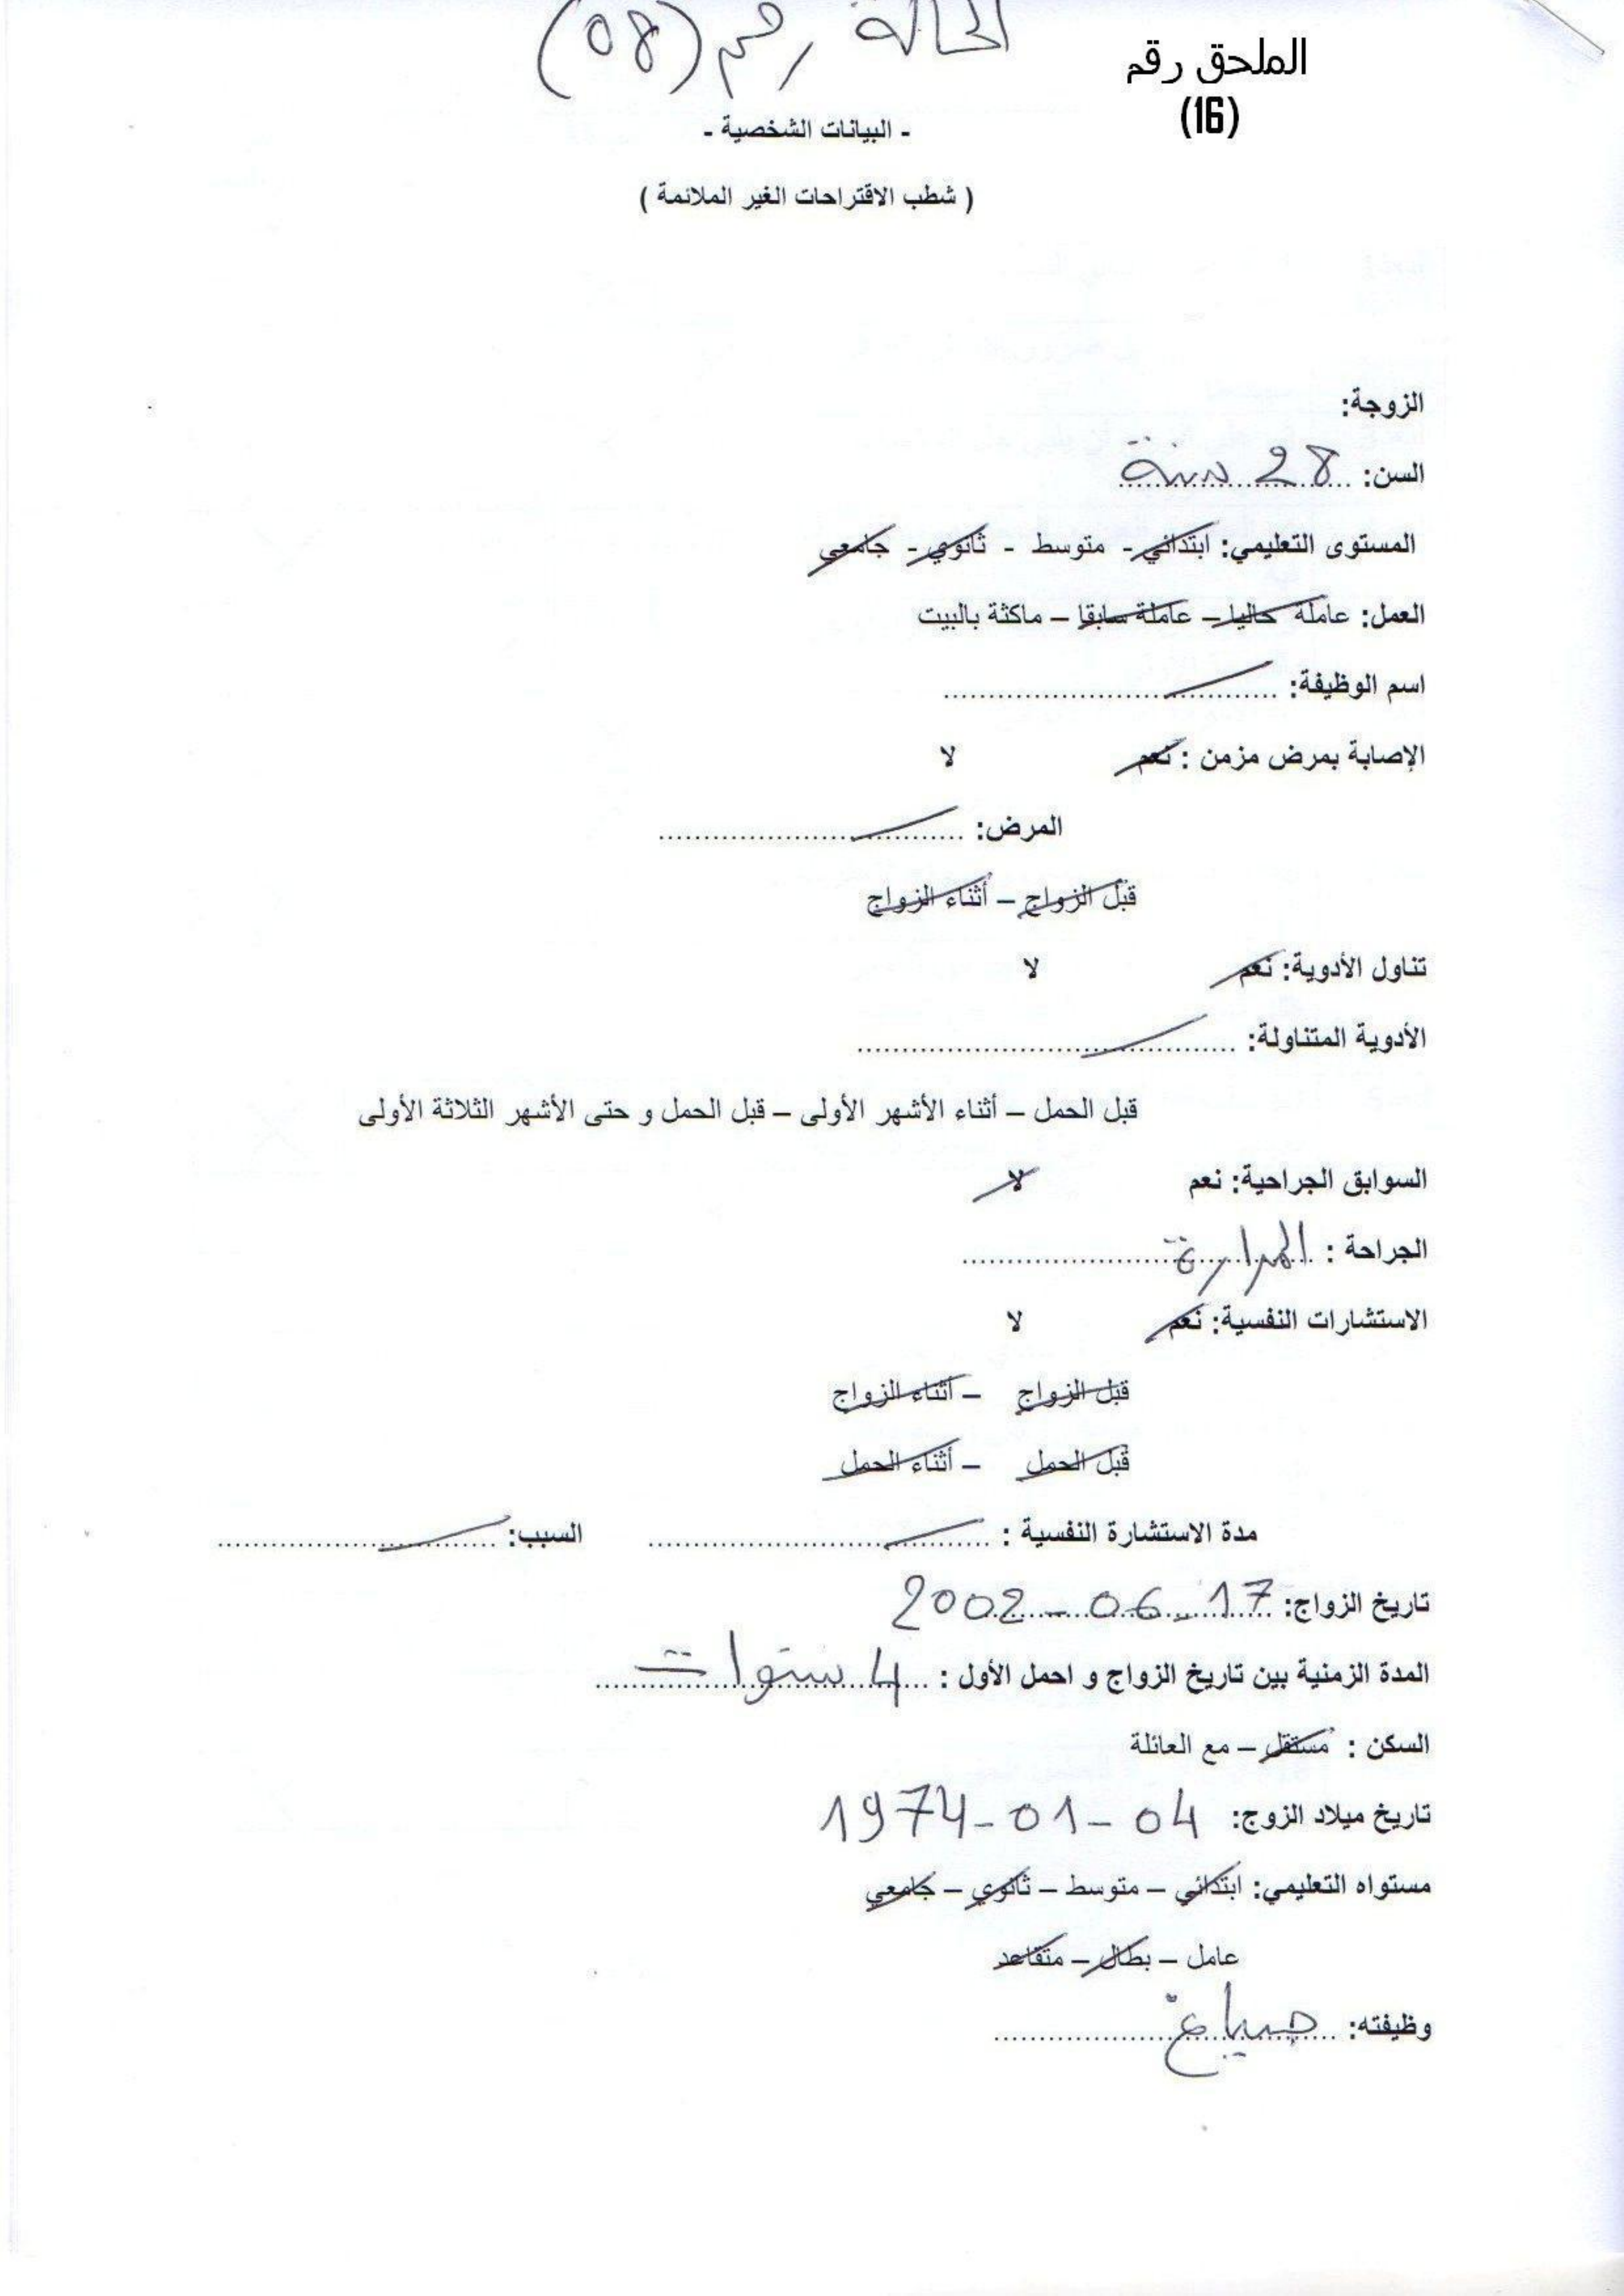 الحالة رقم (08)
الملحق رقم
(16)
- البيانات الشخصية -
( شطب الاقتراحات الغير الملائمة )
الزوجة:
السن: 28 سنة
المستوى التعليمي: ابتدائي - متوسط - ثانوي - جامعي
العمل: عاملة حاليا – عاملة سابقا – ماكثة بالبيت
اسم الوظيفة: ..........................
الإصابة بمرض مزمن : نعم لا
المرض: ..........................
قبل الزواج – أثناء الزواج
تناول الأدوية: نعم لا
الأدوية المتناولة: ..........................
قبل الحمل – أثناء الأشهر الأولى – قبل الحمل و حتى الأشهر الثلاثة الأولى
السوابق الجراحية: نعم لا
الجراحة : المرارة
الاستشارات النفسية: نعم لا
قبل الزواج – أثناء الزواج
قبل الحمل – أثناء الحمل
مدة الاستشارة النفسية : .......................... السبب: ..........................
تاريخ الزواج: 17-06-2002
المدة الزمنية بين تاريخ الزواج و احمل الأول : 4 سنوات
السكن : مستقل – مع العائلة
تاريخ ميلاد الزوج: 04-01-1974
مستواه التعليمي: ابتدائي – متوسط – ثانوي – جامعي
عامل – بطال – متقاعد
وظيفته: صباغ